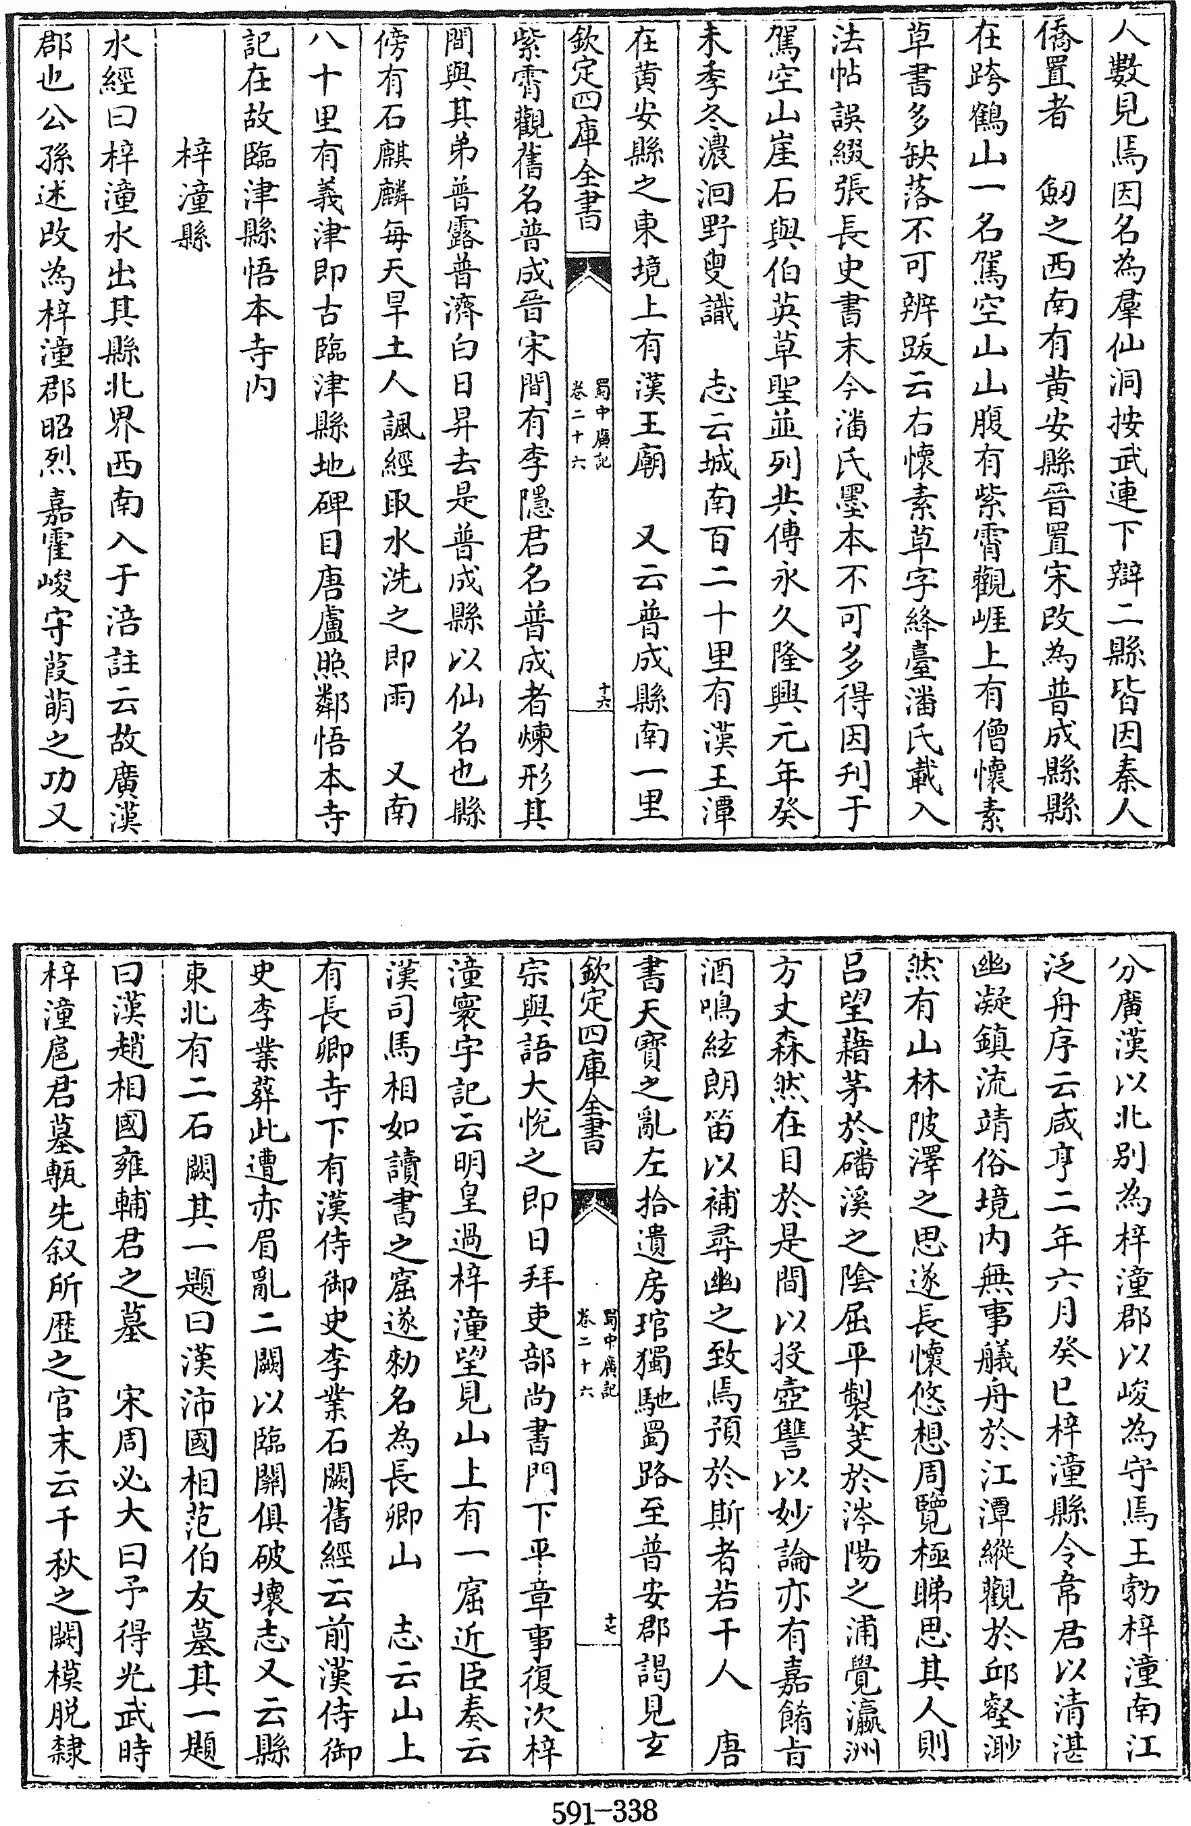 人數見焉因名為羣仙洞按武連下辯二縣皆因秦人
僑置者　劒之西南有黄安縣晉置宋改為普成縣縣
在跨鶴山一名駕空山山腹有紫霄觀崕上有僧懷素
草書多缺落不可辨跋云右懷素草字絳臺潘氏載入
法帖誤綴張長史書末今潘氏墨本不可多得因刋于
駕空山崖石與伯英草聖並列共傳永久隆興元年癸
未季冬濃洄野叟識　志云城南百二十里有漢王潭
在黄安縣之東境上有漢王廟　又云普成縣南一里
欽定四庫全書
蜀中廣記
卷二十六
十六
紫霄觀舊名普成晉宋間有李隱君名普成者煉形其
間與其弟普露普濟白日昇去是普成縣以仙名也縣
傍有石麒麟每天旱土人諷經取水洗之即雨　又南
八十里有義津即古臨津縣地碑目唐盧照鄰悟本寺
記在故臨津縣悟本寺内
梓潼縣
水經曰梓潼水出其縣北界西南入于涪註云故廣漢
郡也公孫述改為梓潼郡昭烈嘉霍峻守葭萌之功又
分廣漢以北别為梓潼郡以峻為守焉王勃梓潼南江
泛舟序云咸亨二年六月癸巳梓潼縣令韋君以清湛
幽凝鎮流靖俗境内無事艤舟於江潭縱觀於邱壑渺
然有山林陂澤之思遂長懷悠想周覽極睇思其人則
呂望藉茅於磻溪之隂屈平製芰於涔陽之浦覺瀛洲
方丈森然在目於是間以投壺讐以妙論亦有嘉餚旨
酒鳴絃朗笛以補尋幽之致焉預於斯者若干人　唐
書天寳之亂左拾遺房琯獨馳蜀路至普安郡謁見玄
欽定四庫全書
蜀中廣記
卷二十六
十七
宗與語大悦之即日拜吏部尚書門下平章事復次梓
潼寰宇記云明皇過梓潼望見山上有一窟近臣奏云
漢司馬相如讀書之窟遂勑名為長卿山　志云山上
有長卿寺下有漢侍御史李業石闕舊經云前漢侍御
史李業葬此遭赤眉亂二闕以臨關俱破壞志又云縣
東北有二石闕其一題曰漢沛國相范伯友墓其一題
曰漢趙相國雍輔君之墓　宋周必大曰予得光武時
梓潼扈君墓甎先叙所歴之官末云千秋之闕模脱隸
591-338